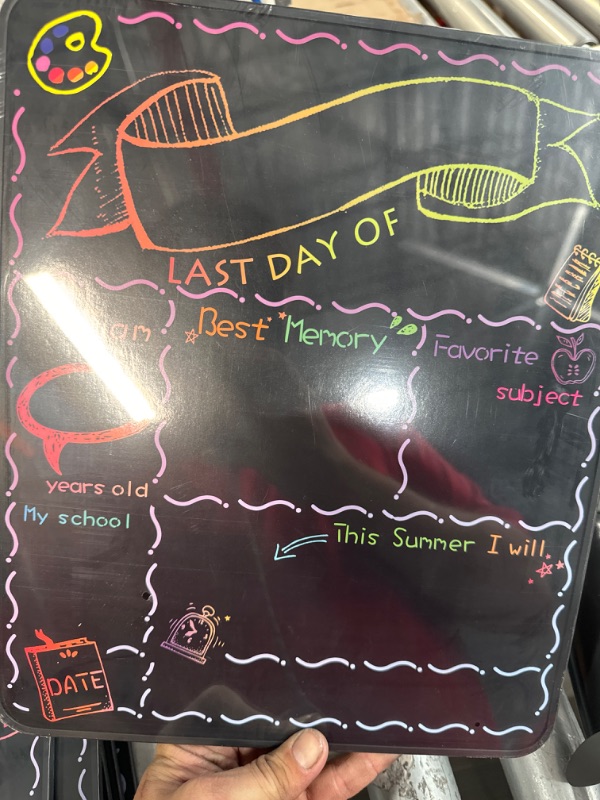 LAST DAY OF
am
Best Memory
Favorite
subject
years old
My school
This Summer I will
DATE